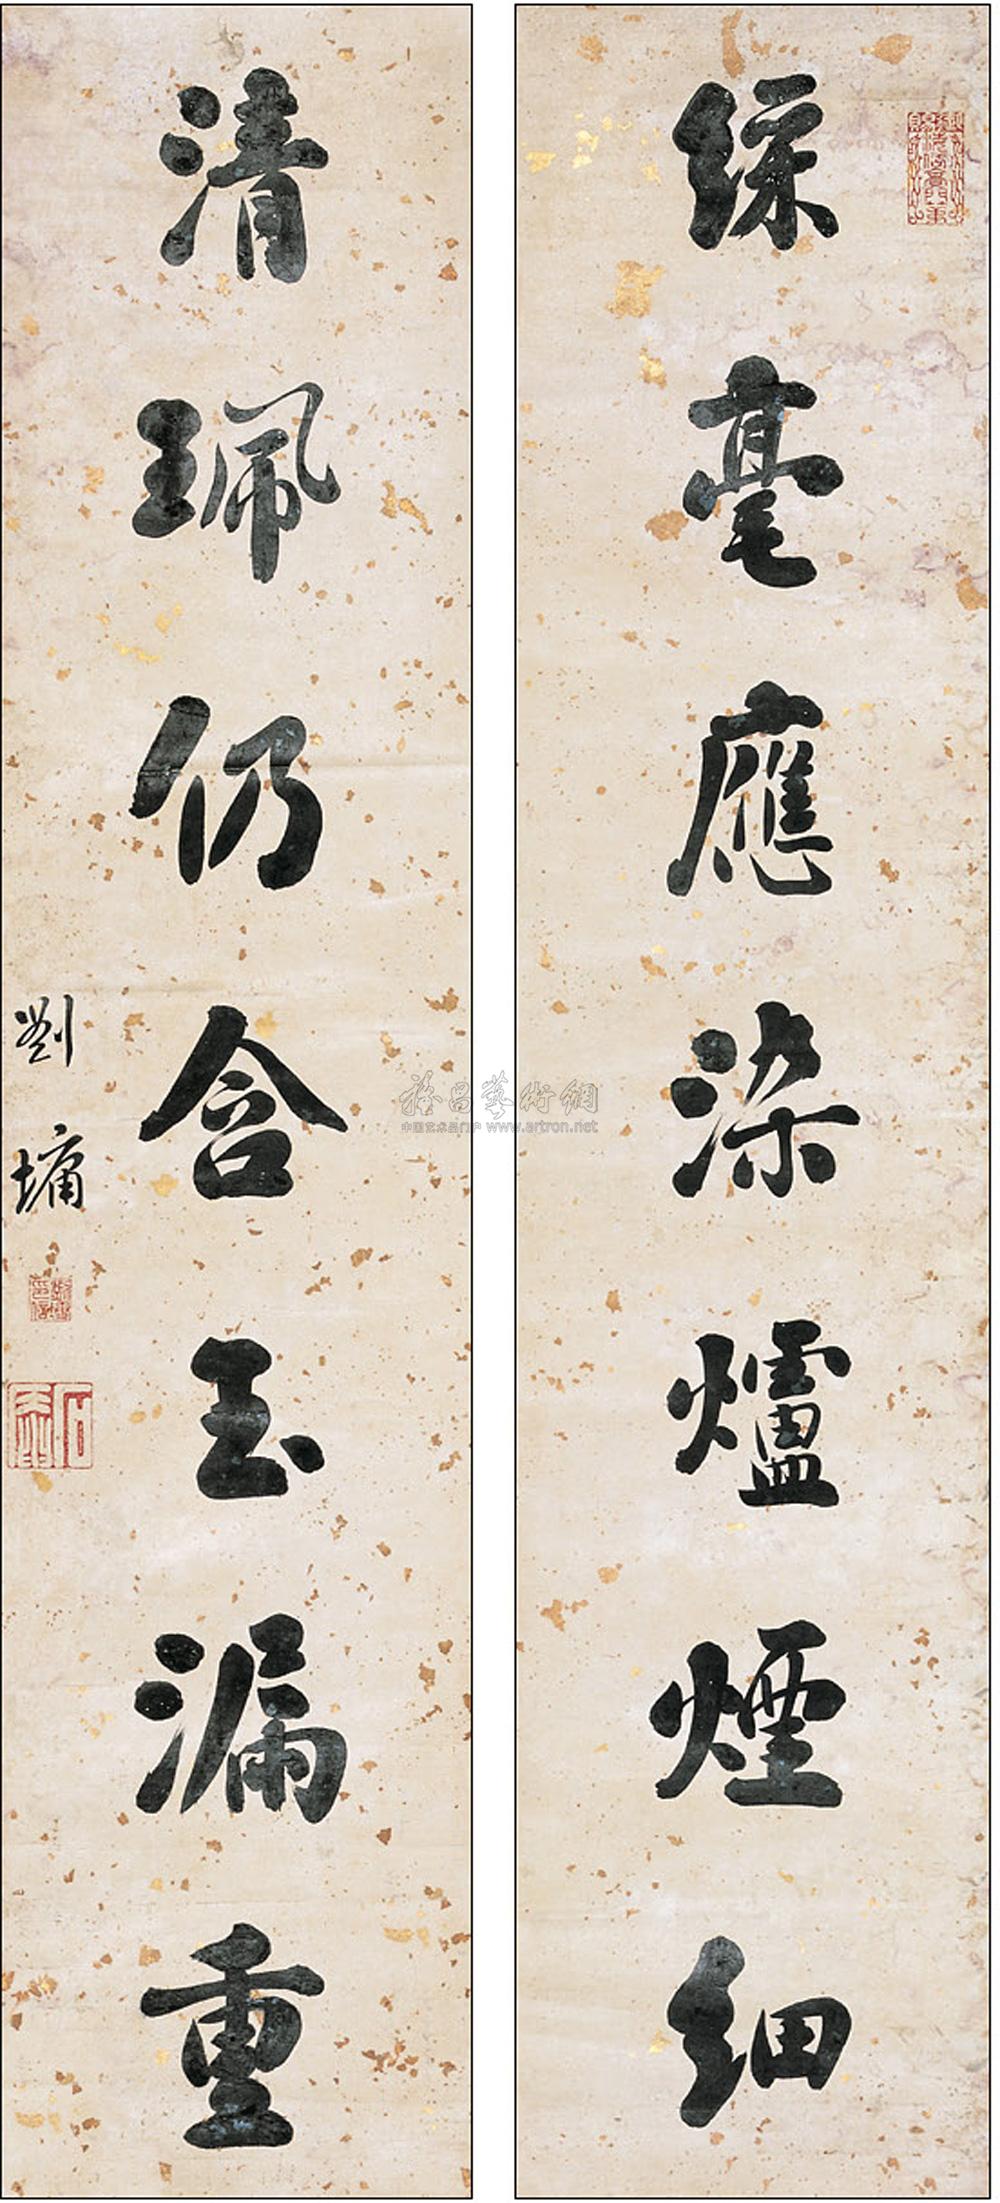 綵毫應染爐煙細
清珮仍含玉漏重
劉墉
中国艺术品门户 www.artron.net